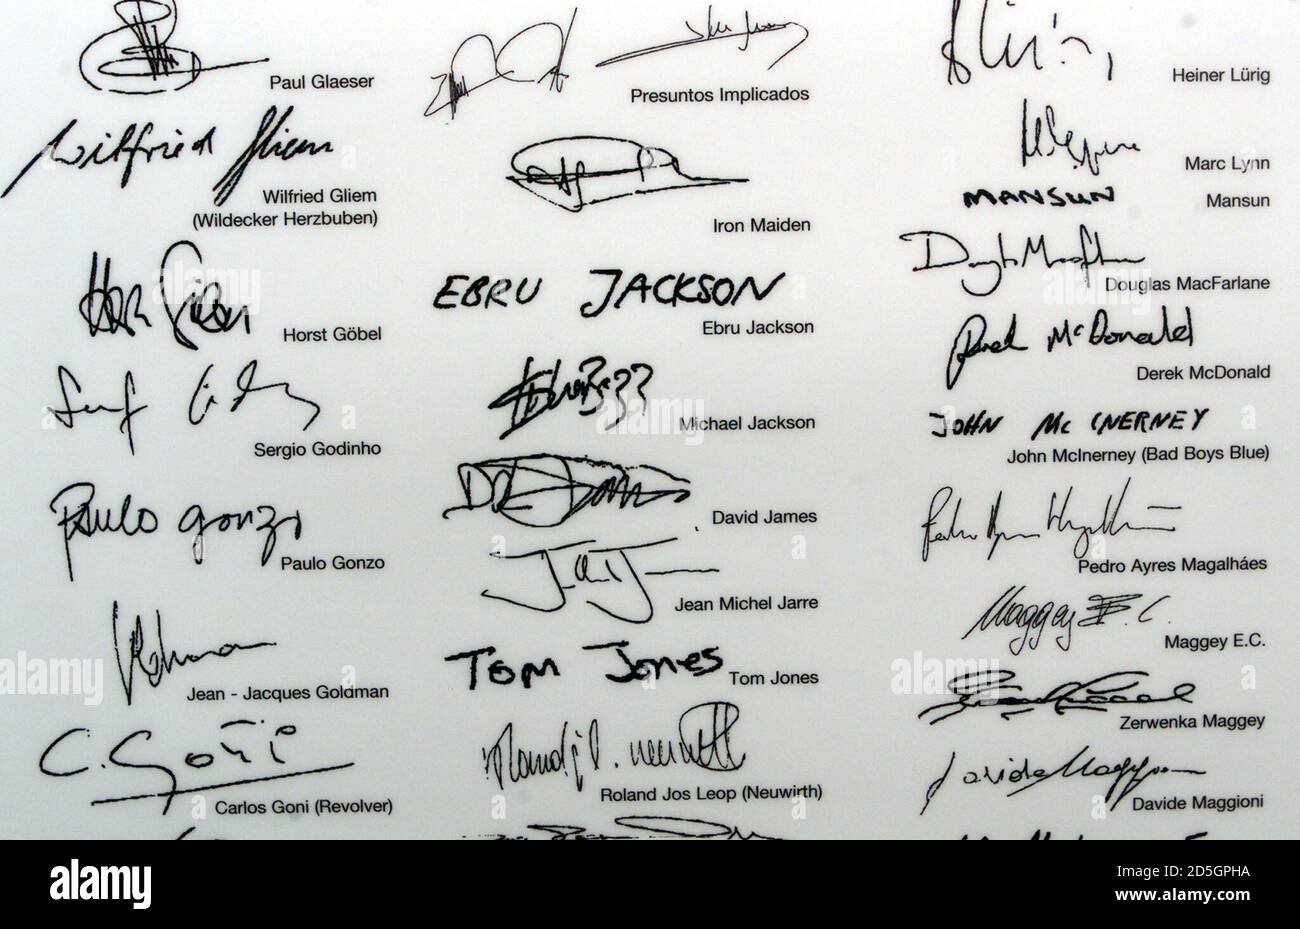 Paul Glaeser
Wilfried Gliem
Wilfried Gliem
(Wildecker Herzbuben)
Horst Göbel
Sergio Godinho
Paulo Gonzo
Paulo Gonzo
Jean - Jacques Goldman
C. Goñi
Carlos Goni (Revolver)
Presuntos Implicados
Iron Maiden
EBRU JACKSON
Ebru Jackson
Michael Jackson
David James
Jean Michel Jarre
TOM JONES
Tom Jones
Roland Jos Leop (Neuwirth)
Heiner Lürig
Marc Lynn
MANSUN
Mansun
Douglas MacFarlane
Derek McDonald
Derek McDonald
JOHN MC INERNEY
John McInerney (Bad Boys Blue)
Pedro Ayres Magalháes
Maggey E.C.
Maggey E.C.
Zerwenka Maggey
Davide Maggioni
Davide Maggioni
alamy
alamy
Image ID: 2D5GPHA
www.alamy.com